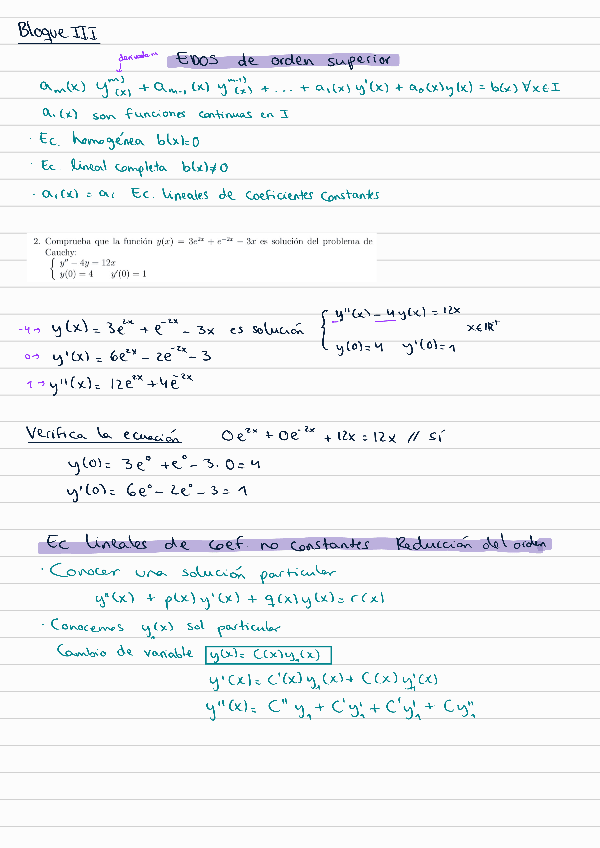 Bloque III
derivadas
EDOS de orden superior
aₘ(x) y^{m)}(x) + aₘ₋₁(x) y^{m-1)}(x) + ... + a₁(x) y'(x) + a₀(x) y(x) = b(x) ∀x∈I
aᵢ(x) son funciones continuas en I
· Ec. homogénea b(x)=0
· Ec lineal completa b(x)≠0
· aᵢ(x) = aᵢ Ec. lineales de coeficientes constantes
2. Comprueba que la función y(x) = 3e^{2x} + e^{-2x} − 3x es solución del problema de
Cauchy:
{ y'' − 4y = 12x
y(0) = 4 y'(0) = 1
-4→ y(x) = 3e^{2x} + e^{-2x} - 3x es solución { y''(x) - 4y(x) = 12x
x∈ℝ⁺
y(0)=4 y'(0)=1
0→ y'(x) = 6e^{2x} - 2e^{-2x} - 3
1→ y''(x) = 12e^{2x} + 4e^{-2x}
Verifica la ecuación 0e^{2x} + 0e^{-2x} + 12x = 12x // Sí
y(0) = 3e⁰ + e⁰ - 3·0 = 4
y'(0) = 6e⁰ - 2e⁰ - 3 = 1
Ec lineales de coef. no constantes Reducción del orden
· Conocer una solución particular
y''(x) + p(x) y'(x) + q(x) y(x) = r(x)
· Conocemos y₁(x) sol particular
Cambio de variable y(x) = C(x) y₁(x)
y'(x) = C'(x) y₁(x) + C(x) y₁'(x)
y''(x) = C'' y₁ + C'y₁' + C'y₁' + Cy₁''